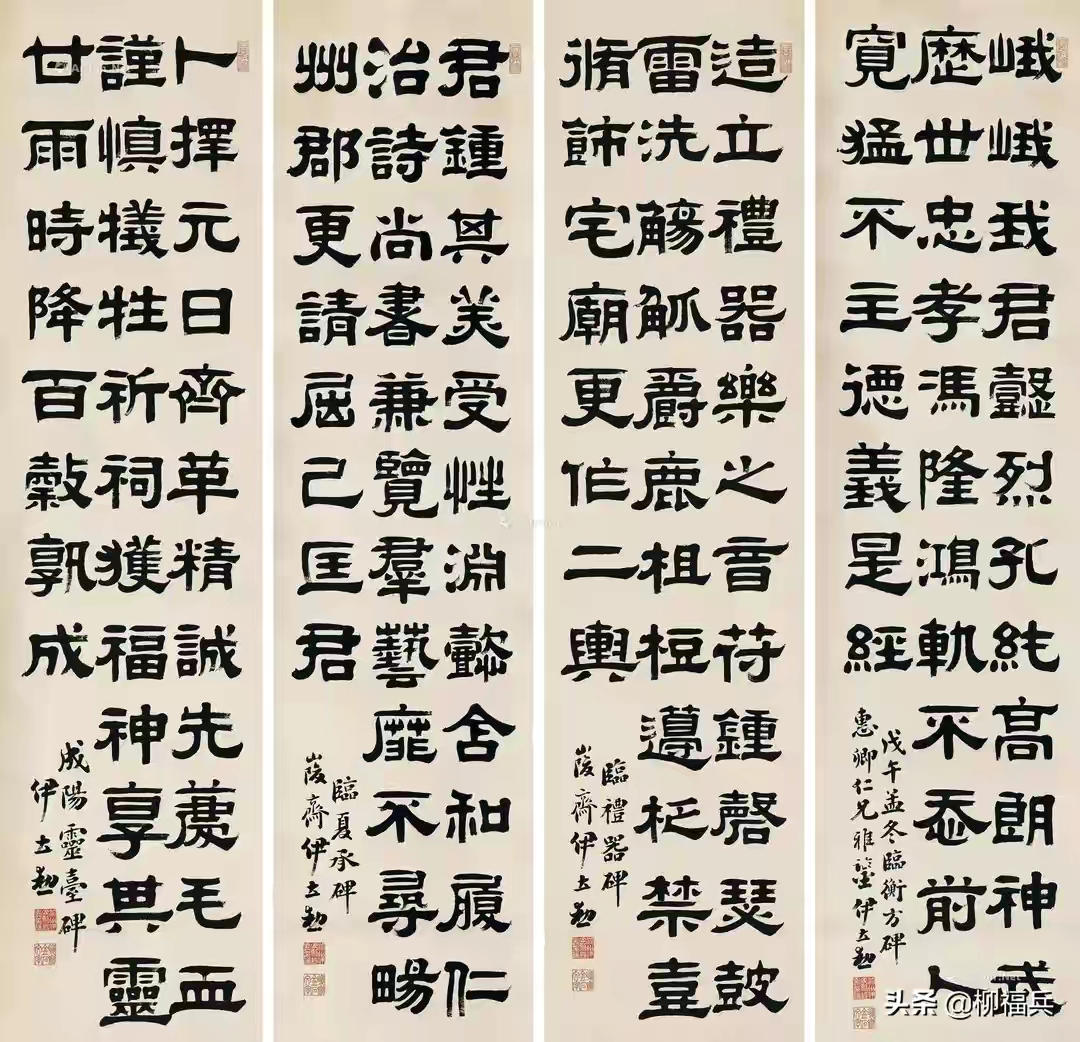 峨峨我君懿烈孔純高朗神武
歷世忠孝馮隆鴻軌不忝前人
寬猛不主德義是經
戊午孟冬臨衡方碑
惠卿仁兄雅鑒伊立勳
造立禮器樂之音苻鍾磬瑟鼓
雷洗觴觚爵鹿柤梪籩柉禁壺
脩飾宅廟更作二輿
臨禮器碑
峻齋伊立勳
君鍾其美受性淵懿含和履仁
治詩尚書兼覽羣藝靡不尋暢
州郡更請屈己匡君
臨夏承碑
峻齋伊立勳
卜擇元日齊革精誠先薦毛血
謹慎犧牲祈祠獲福神享其靈
甘雨時降百穀孰成
成陽靈臺碑
伊立勳
头条 @柳福兵